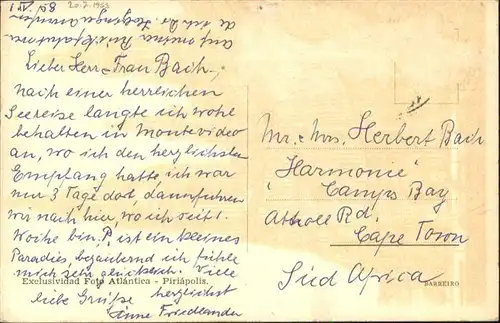 1 IV. 58
20.7.1963
Lieber Herr + Frau Bach,
nach einer herrlichen
Seereise langte ich wohl
behalten in Montevideo
an, wo ich den herzlichsten
Empfang hatte, ich war
nur 3 Tage dort, dann fuhren
wir nach hier, wo ich seit 1.
Woche bin. P. ist ein kleines
Paradies bezaubernd ich fühle
mich sehr glücklich. Viele
liebe Grüße herzlichst
Anne Friedlander
Exclusividad Foto Atlántica - Piriápolis.
Mr. + Mrs. Herbert Bach
"Harmonie"
Camps Bay
Atholl Rd.
Cape Town
Süd Africa
BARREIRO